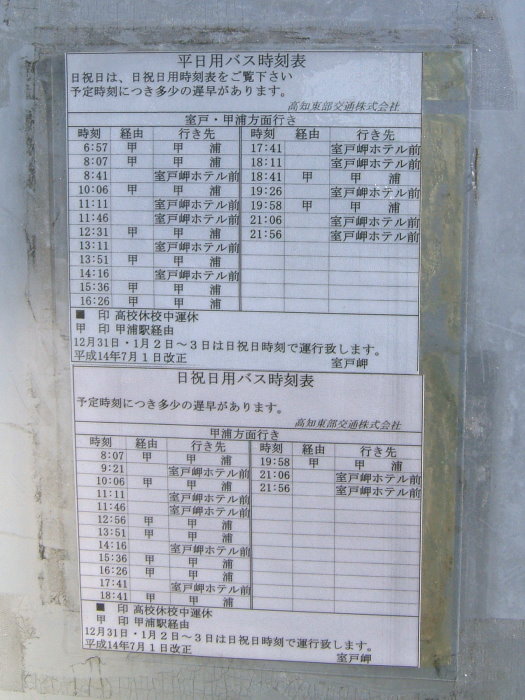 平日用バス時刻表
日祝日は、日祝日用時刻表をご覧下さい
予定時刻につき多少の遅早があります。
高知東部交通株式会社
室戸・甲浦方面行き
時刻 経由 行き先 時刻 経由 行き先
6:57 甲 甲 浦 17:41 室戸岬ホテル前
8:07 甲 甲 浦 18:11 室戸岬ホテル前
8:41 室戸岬ホテル前 18:41 甲 甲 浦
10:06 甲 甲 浦 19:26 室戸岬ホテル前
11:11 室戸岬ホテル前 19:58 甲 甲 浦
11:46 室戸岬ホテル前 21:06 室戸岬ホテル前
12:31 甲 甲 浦 21:56 室戸岬ホテル前
13:11 室戸岬ホテル前
13:51 甲 甲 浦
14:16 室戸岬ホテル前
15:36 甲 甲 浦
16:26 甲 甲 浦
■ 印 高校休校中運休
甲 印 甲浦駅経由
12月31日・1月2日~3日は日祝日時刻で運行致します。
平成14年7月1日改正 室戸岬
日祝日用バス時刻表
予定時刻につき多少の遅早があります。
高知東部交通株式会社
甲浦方面行き
時刻 経由 行き先 時刻 経由 行き先
8:07 甲 甲 浦 19:58 甲 甲 浦
9:21 室戸岬ホテル前 21:06 室戸岬ホテル前
10:06 甲 甲 浦 21:56 室戸岬ホテル前
11:11 室戸岬ホテル前
11:46 室戸岬ホテル前
12:56 甲 甲 浦
13:51 甲 甲 浦
14:16 室戸岬ホテル前
15:36 甲 甲 浦
16:26 甲 甲 浦
17:41 室戸岬ホテル前
18:41 甲 甲 浦
■ 印 高校休校中運休
甲 印 甲浦駅経由
12月31日・1月2日~3日は日祝日時刻で運行致します。
平成14年7月1日改正 室戸岬